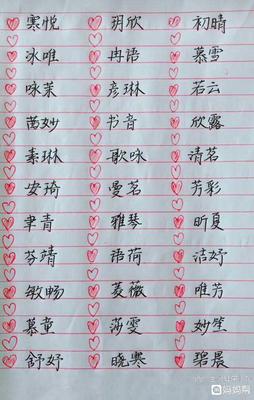 寒悦 玥欣 初晴
冰唯 冉语 慕雪
咏茉 彦琳 若云
茜妙 书音 欣露
素琳 歌咏 清茗
安琦 曼茗 芳彩
聿青 雅琴 昕夏
芬靖 语荷 洁妤
敏畅 菱薇 唯芳
慕童 莎雯 妙笙
舒妤 晓寒 碧晨
妈妈帮